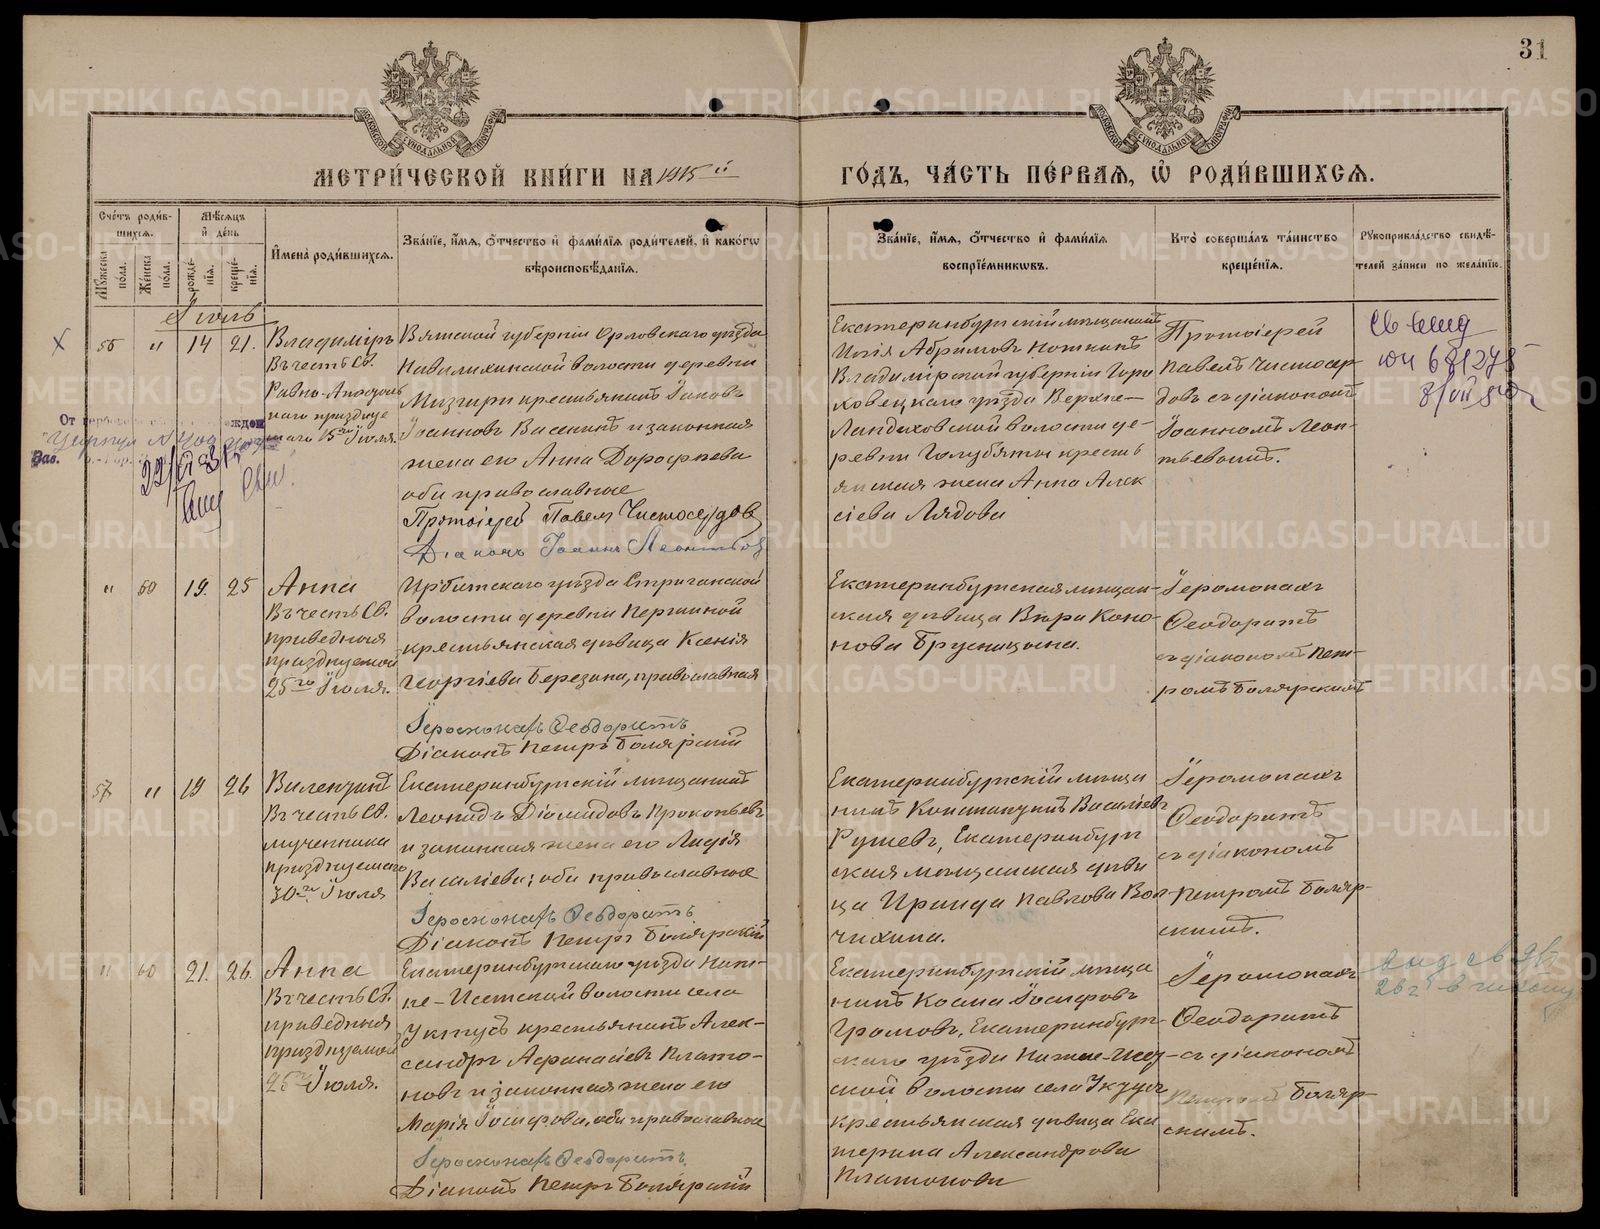 31
МЕТРИ́ЧЕСКОЙ КНИ́ГИ НА 1915й
ГО́ДЪ, ЧА́СТЬ ПЕ́РВАѦ, Ѡ҆ РОДИ́ВШИХСѦ.
МОСКОВСКОЙ СѴНОДАЛЬНОЙ ТИПОГРАФІИ
МОСКОВСКОЙ СѴНОДАЛЬНОЙ ТИПОГРАФІИ
Сче́тъ роди́вшихсѧ.
Мꙋ́жеска пола.
Же́нска пола.
Мѣ́сѧцъ и҆ де́нь
рожде́нїѧ.
креще́нїѧ.
И҆мена̀ роди́вшихсѧ.
Зва́нїе, и҆́мѧ, ѻ҆́тчество и҆ фами́лїѧ роди́телей, и҆ како́гѡ
вѣроисповѣ́данїѧ.
Зва́нїе, и҆́мѧ, ѻ҆́тчество и҆ фами́лїѧ
воспрїе́мникѡвъ.
Кто̀ соверша́лъ та́инство
креще́нїѧ.
Рꙋкоприкла́дство свидѣ́-
телей за́писи по жела́нїю.
Іюль
56 " 14 21.
Владиміръ
Въ честь Св.
Равно-Апостоль
наго празднуе
маго 15го Іюля.
Вятской губерніи Орловскаго уѣзда
волости деревни
Мизгири крестьянинъ Іаковъ
Іоанновъ Васенинъ и законная
жена его Анна Дорофеева
оба православные
Протоіерей Павел Чистосердов
Діаконъ Іоаннъ Леонтьев
Екатеринбургскій мѣщанинъ
Абрамовъ
Владимірской губерніи Горо
ховецкаго уѣзда Верхне-
Ландеховской волости де-
ревни Голубяты крестья
янская жена Анна Алек
сіева Лядова
Протоіерей
Павелъ Чистосер
довъ съ діакономъ
Іоанномъ Леон-
тьевымъ.
Св
юи 681275
" 60 19. 25
Анна
Въ честь Св.
праведныя
празднуемой
25го Іюля.
Ирбитскаго уѣзда Стриганской
волости деревни Першиной
крестьянская дѣвица Ксенія
Георгіева Березина, православная
Іеромонахъ Ѳеодоритъ
Діаконъ Петръ Боляркій
Екатеринбургская мѣщан-
ская дѣвица Вѣра Коно-
нова Брусницына.
Іеромонахъ
Ѳеодоритъ
съ діакономъ Пет-
ромъ Боляркимъ
57 " 19 26
Валентинъ
Въ честь Св.
мученника
празднуемаго
30го Іюля
Екатеринбургскій мѣщанинъ
Леонидъ Діомидовъ Прокопьевъ
и законная жена его Лидія
Василіева; оба православные
Іеромонахъ Ѳеодоритъ
Діаконъ Петръ Боляркій
Екатеринбургскій мѣща
нинъ Константинъ Василіевъ
Екатеринбург
ская мѣщанская дѣви
ца Ираида Павлова Вол
чихина.
Іеромонахъ
Ѳеодоритъ
съ діакономъ
Петромъ Боляр-
скимъ.
" 60 21. 26.
Анна
Въ честь Св.
праведныя
празднуемой
25го Іюля.
Екатеринбургскаго уѣзда Ниж-
не-Исетской волости села
Уктусъ крестьянинъ Алек-
сандръ Аѳанасіевъ Плато-
новъ и законная жена его
Марія Іосифова, оба православные
Іеромонахъ Ѳеодоритъ.
Діаконъ Петръ Боляркій
Екатеринбургскій мѣща
нинъ Косма Іосифовъ
Громовъ, Екатеринбург-
скаго уѣзда Нижне-Исет
ской волости села Уктусъ
крестьянская дѣвица Ека
терина Александрова
Платонова
Іеромонахъ
Ѳеодоритъ
съ діакономъ
Петромъ Боляр-
скимъ.
METRIKI.GASO-URAL.RU